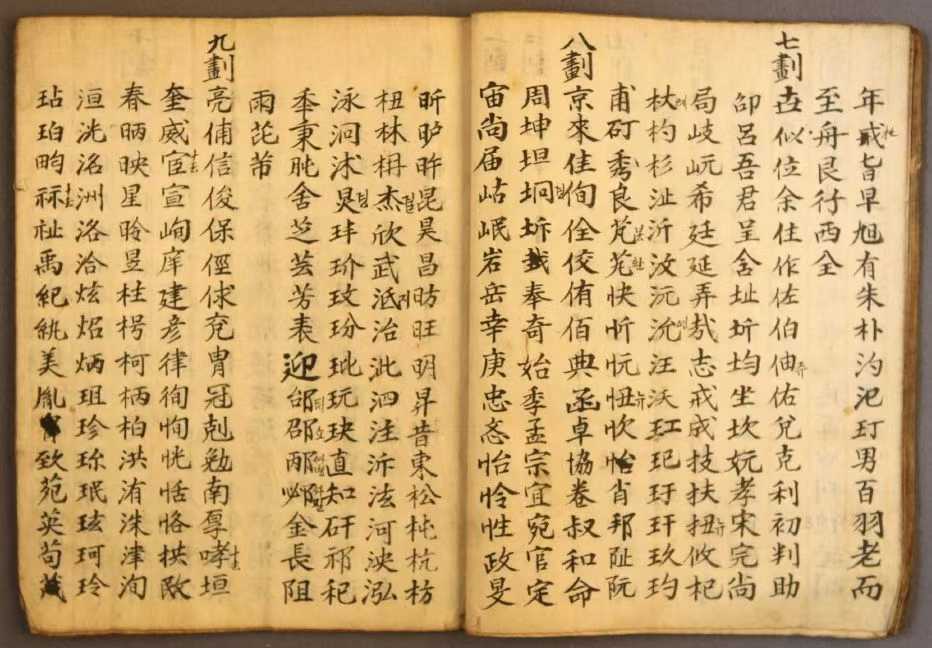 年戒旨早旭有朱朴汋汜玎男百羽老而
至舟艮行西全
七劃
似位余住作佐伯伷佑兌克利初判助
卲呂吾君呈舍址圻均坐坎妧孝宋完尙
局岐岏希廷延弄志戒成技扶扭攸杞
杕杓杉沚沂汶沅沇汪沃玒玘玗玕玖玓
甫矴秀良芃芄快忻忨忸忺肖邦阯阮
八劃
京來佳侚佺佼侑佰典函卓協卷叔和命
周坤坦坰坼奉奇始季孟宗宜宛官定
宙尙届岵岷岩岳幸庚忠忞怡怜性政旻
昕昈昨昆昊昌昉旺明昇昔東松杶杭枋
杻林枏杰欣武泜治泚泗注泝法河泱泓
泳泂沭炅玤玠玟玢玼玩玦直知矸祁祀
秊秉肫舍芝芸芳表迎邰邵邴邲金長阻
雨芘芾
九劃
亮俌信俊保俓俅兗冑冠剋勉南厚哮垣
奎威宧宣峋庠建彦律徇恂恍恬恪拱敃
春昞映星昤昱柱枵柯柄柏洪洧洙津洵
洹洸洺洲洛洽炫炤炳珇珍珎珉玹珂玲
玷珀畇祉禹紀紈美胤致苑英苟茂